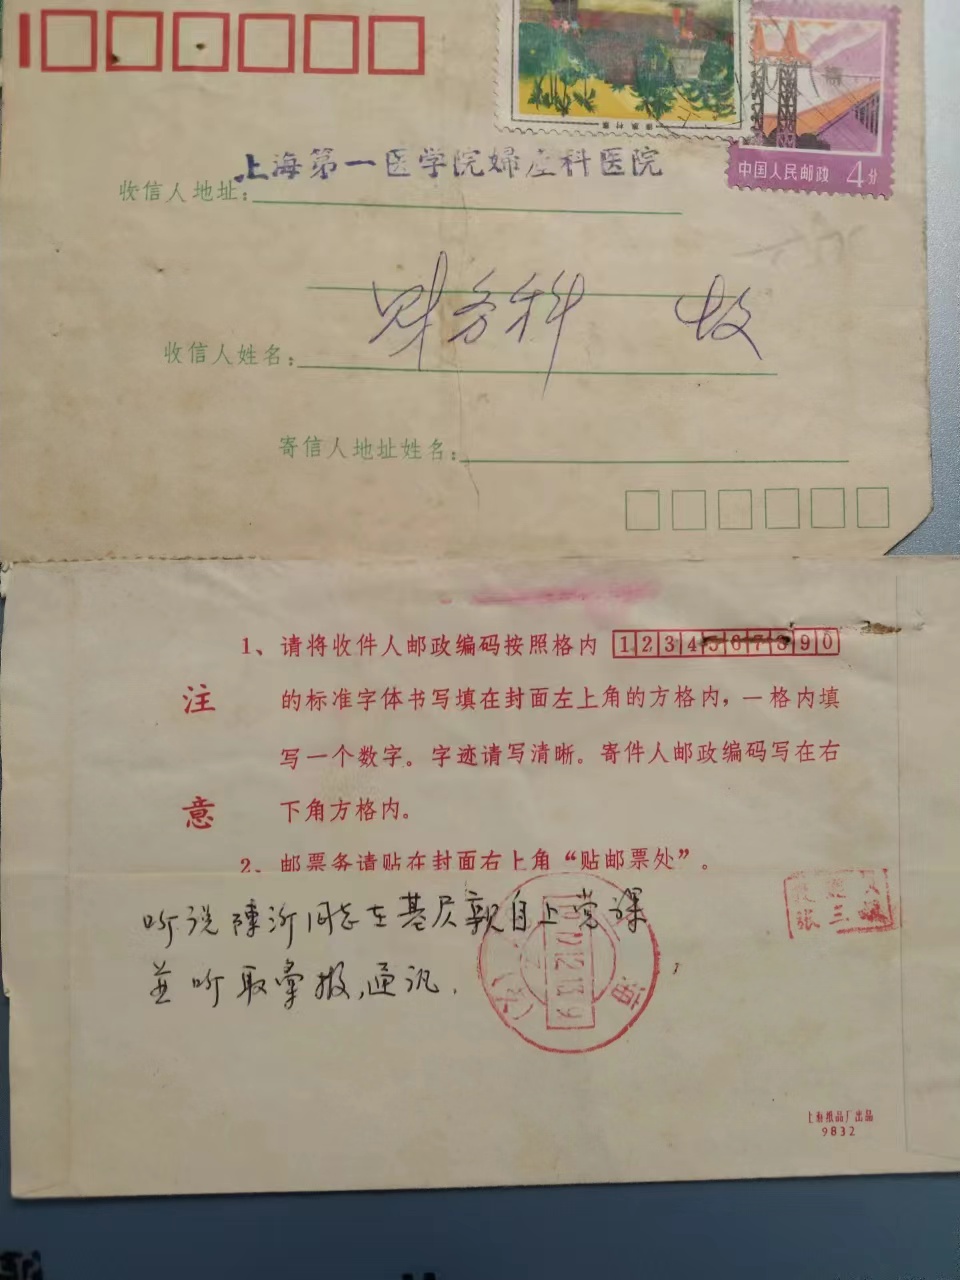 中国人民邮政 4分
上海第一医学院婦产科医院
收信人地址：
财务科 收
收信人姓名：
寄信人地址姓名：
注意
1、请将收件人邮政编码按照格内 1234567890
的标准字体书写填在封面左上角的方格内，一格内填
写一个数字。字迹请写清晰。寄件人邮政编码写在右
下角方格内。
2、邮票务请贴在封面右上角“贴邮票处”。
听说陳沂同志在基层親自上党课
並听取彙报，通讯．
海
张三
上海纸品厂出品
9832